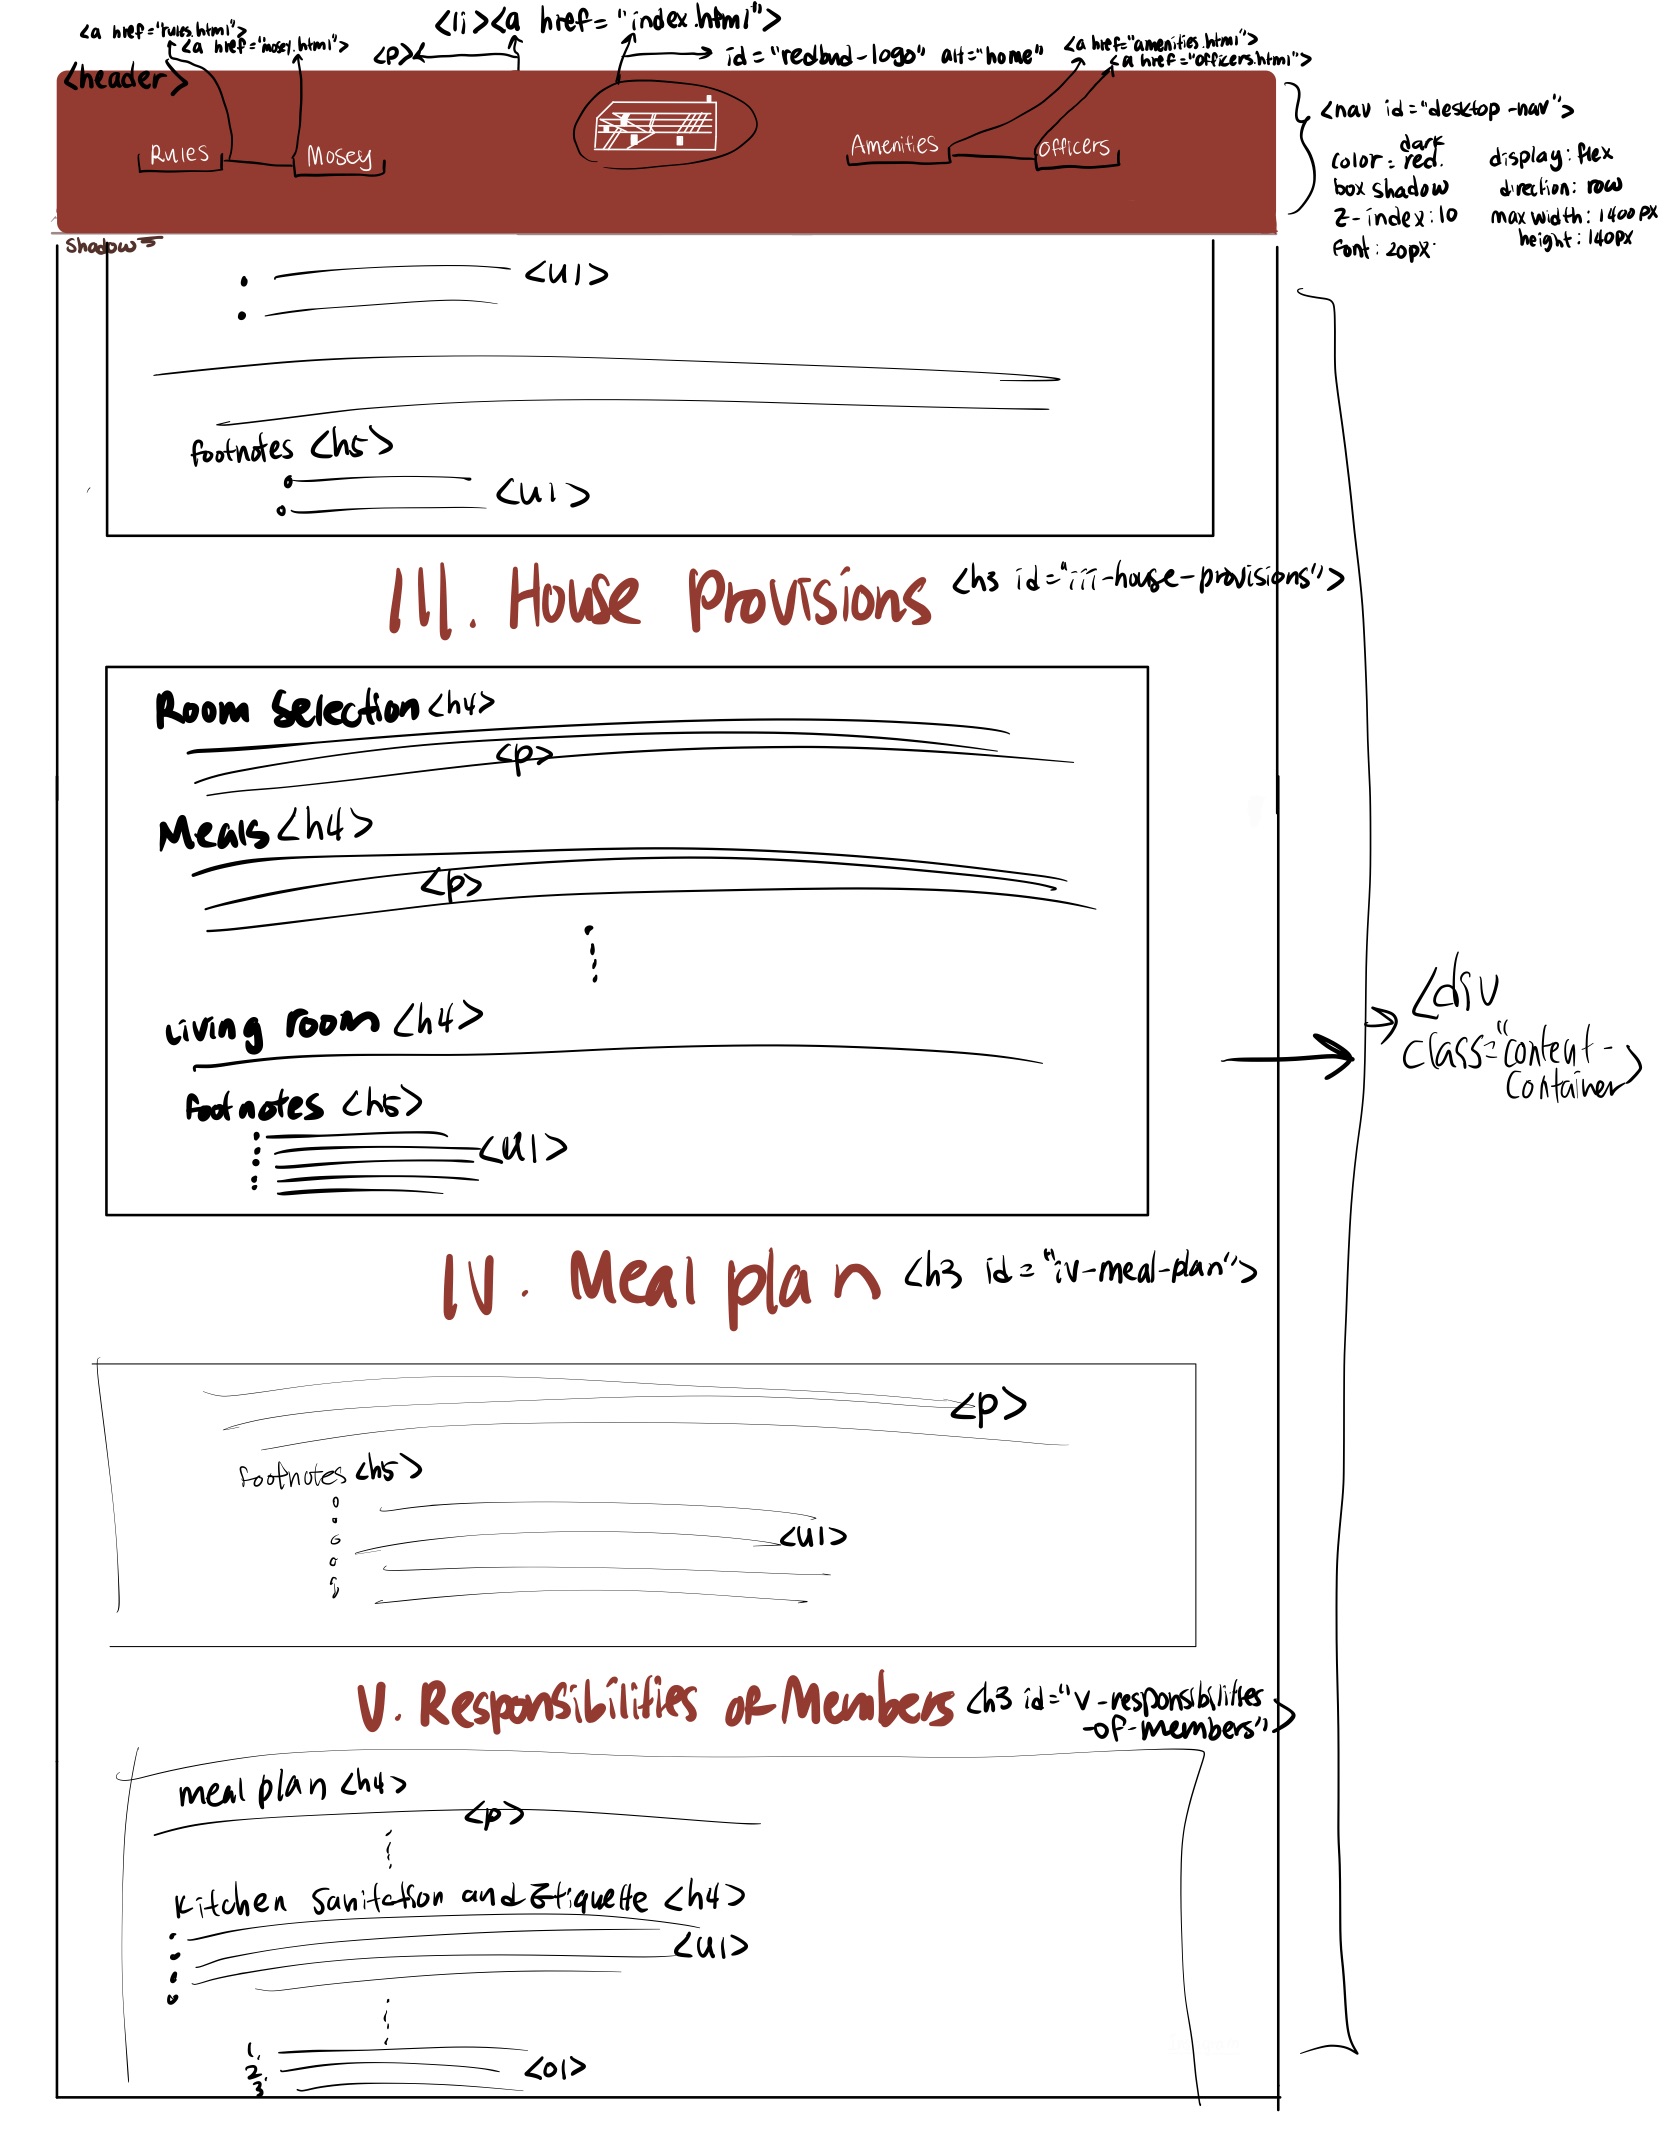 <a href="rules.html">
<a href="mosey.html">
<li><a href="index.html">
<p>
id="redbud-logo" alt="home"
<a href="amenities.html">
<a href="officers.html">
<header>
Rules
Mosey
Amenities
Officers
<nav id="desktop-nav">
color: dark red.
display: flex
box shadow
direction: row
z-index: 10
max width: 1400px
font: 20px
height: 140px
Shadow
<ul>
footnotes <h5>
<ul>
III. House Provisions <h3 id="iii-house-provisions">
Room Selection <h4>
<p>
Meals <h4>
<p>
Living room <h4>
footnotes <h5>
<ul>
<div
class="content-
container>
IV. Meal plan <h3 id="iv-meal-plan">
<p>
footnotes <h5>
<ul>
V. Responsibilities of Members <h3 id="v-responsibilities
-of-members">
meal plan <h4>
<p>
Kitchen Sanitation and Etiquette <h4>
<ul>
1.
2.
3.
<ol>